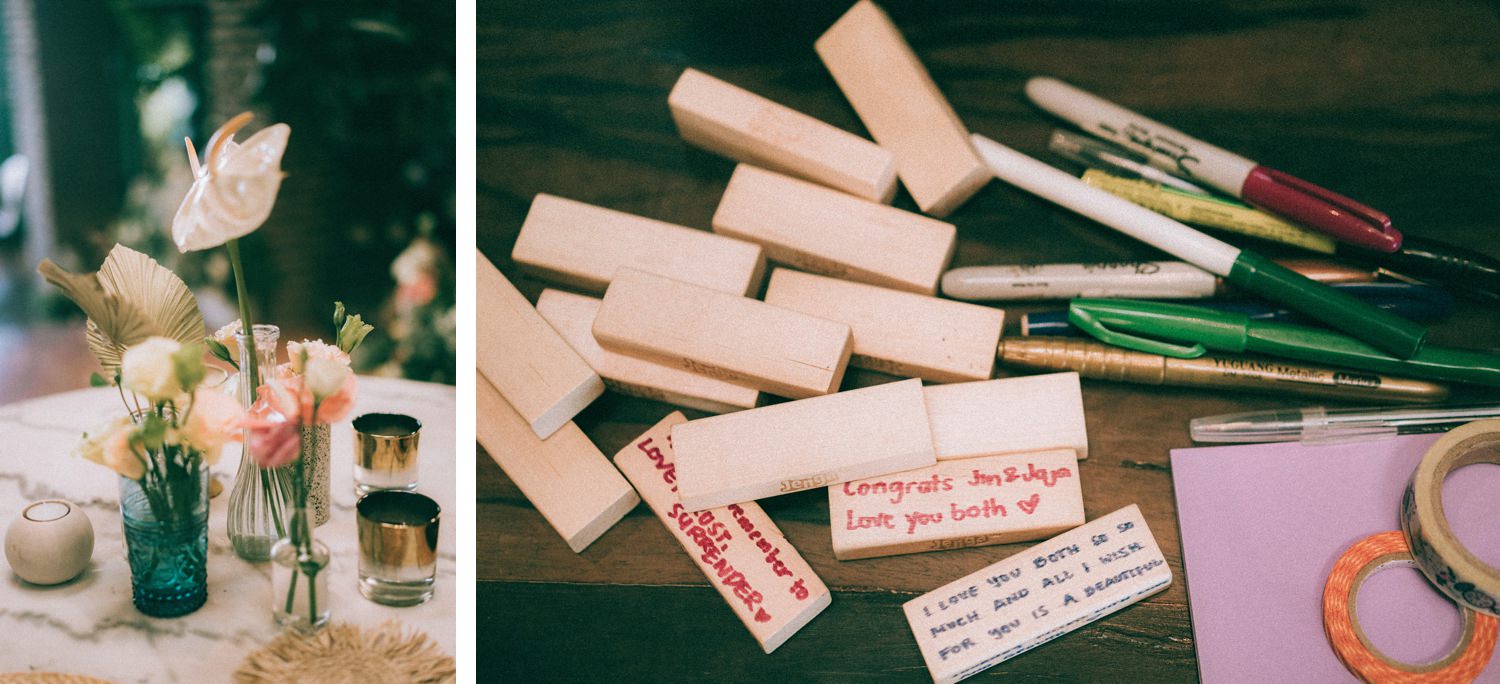 Sharpie
YUGUANG Metallic Marker
Jenga
LOVE
LOST,
SURRENDER
remember to
Congrats Jim & Jaja
Love you both ♥
Jenga
I LOVE YOU BOTH SO SO
MUCH AND ALL I WISH
FOR YOU IS A BEAUTIFUL